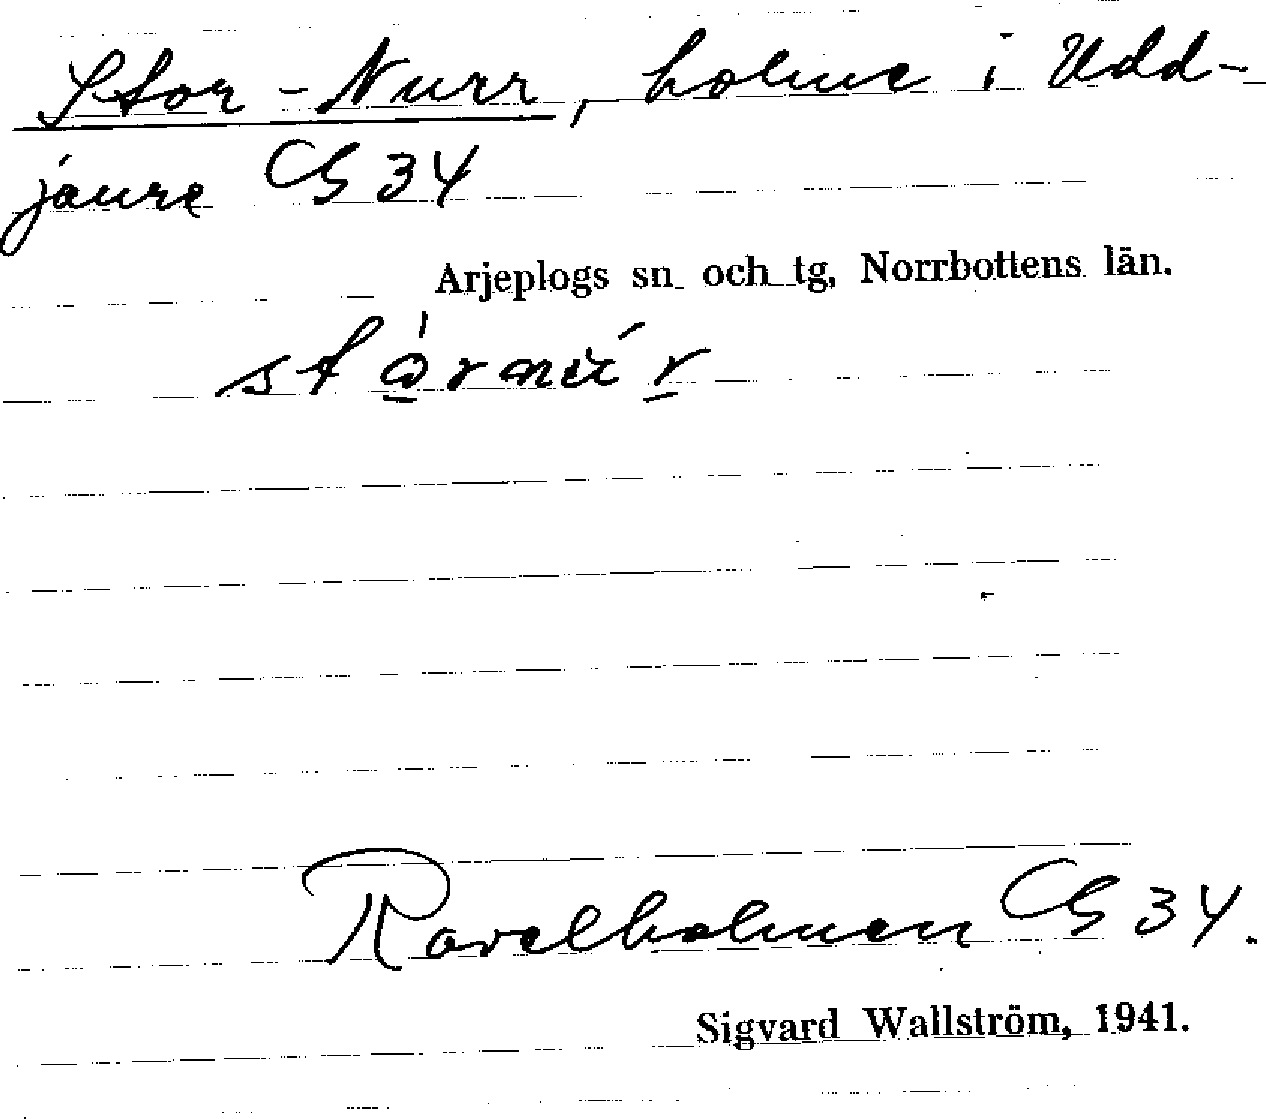 Stor-Nurr, holme i Udd-
jaure G 34
Arjeplogs sn och tg, Norrbottens län.
Ravelholmen G 34.
Sigvard Wallström, 1941.